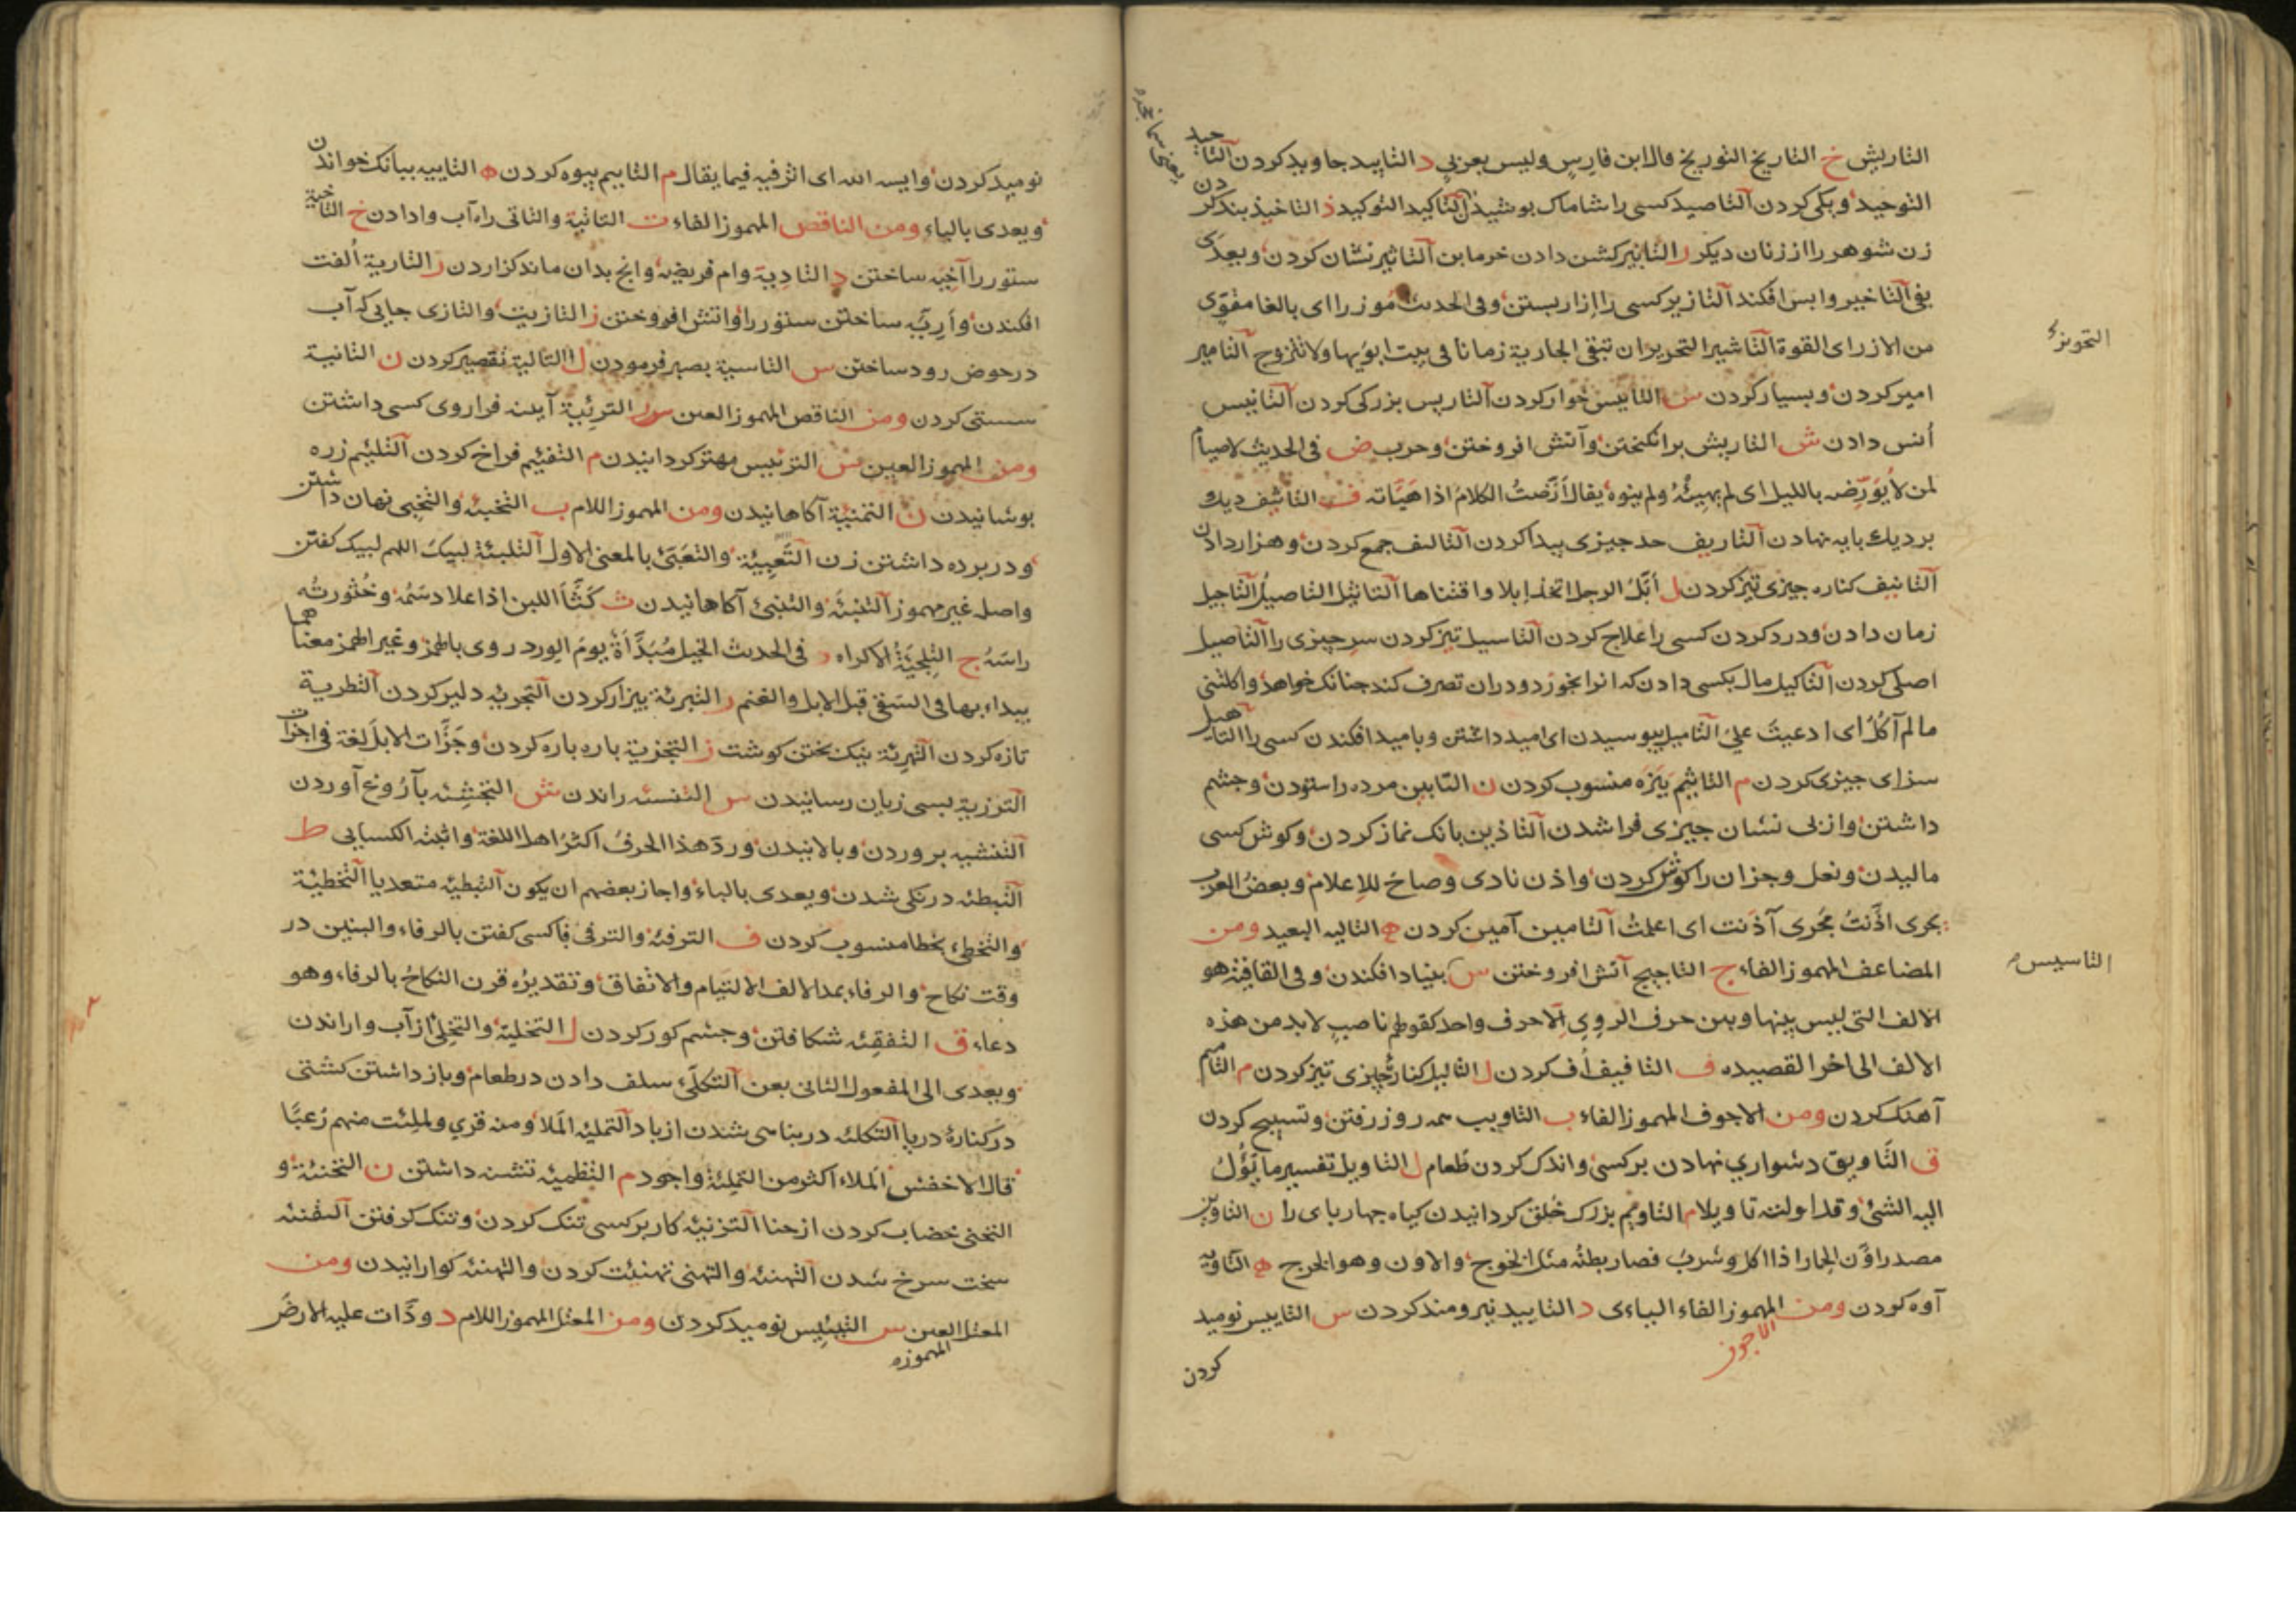 التاریش خ التاریخ التوریخ قال ابن فارس ولیس بعربی د التابید جاوید کردن التاحید
التوحید وبکی کردن التاصید کسی را شاماک پوشیدن التاکید التوکید ذ التاخیذ بند کردن
زن شوهر را از زنان دیکر ر التابیر کشن دادن خرما بن التاثیر نشان کردن ویعدی
بفی التاخیر واپس افکند التازیر کسی را ازار بستن وفی الحدیث مؤزرا ای بالغا مقوی
من الازر ای القوة التاشیر التحریر ان تبقی الجاریة زمانا فی بیت ابویها ولا تتزوج التامیر
امیر کردن وبسیار کردن س التابیس خوار کردن التاریس بزرکی کردن التانیس
اُنس دادن ش التاریش برانکیختن وآتش افروختن وحرب ض فی الحدیث لا صیام
لمن لا یُؤَرِّضه باللیل ای لم یهیئه ولم ینوه یقال اَرَّضتُ الکلام اذا هَیَّاته ف التاثیف دیک
بر دیک پایه نهادن التاریف حد چیزی پیدا کردن التالیف جمع کردن وهزار دادن
التانیف کناره چیزی تیز کردن ل أبَّل الرجل اتخذ إبلا واقتناها التاثیل التاصیل التاجیل
زمان دادن ودرد کردن کسی را علاج کردن التاسیل تیز کردن سر چیزی را التاصیل
اصلی کردن التاکیل مال بکسی دادن که انرا بخورد ودران تصرف کند چنانک خواهد واکلتنی
مالم آکُل ای ادعیتَ علیّ التامیل بیوسیدن ای امید داشتن وبامید افکندن کسی را التاهیل
سزای چیزی کردن م التاثیم بَبَزَه منسوب کردن ن التابین مرده را ستودن وچشم
داشتن واز پی نشان چیزی فرا شدن التاذین بانک نماز کردن وکوش کسی
مالیدن ونعل وجزان را کوش کردن واذن نادی وصاح للإعلام وبعض العرب
یجری اذَّنتُ مجری آذنت ای اعلمتُ التامین آمین کردن ه التالیه البعید ومن
المضاعف المهموز الفاء ج التاجیج آتش افروختن س بنیاد افکندن وفی القافیة هو
الالف التی لیس بینها وبین حرف الروی الّا حرف واحد کقولهم ناصب لابد من هذه
الالف الی اخر القصیده ف التافیف اُف کردن ل التالیل کنارهٔ چیزی تیز کردن م التامیم
آهنک کردن ومن الاجوف المهموز الفاء ب التاویب همه روز رفتن وتسبیح کردن
ق التَّاویق دشواری نهادن بر کسی واندک کردن طعام ل التاویل تفسیر ما یَؤُلُ
الیه الشیٔ وقد اولته تاویلا م التاویم بزرک خلق کردانیدن کیاه چهارپای را ن التاوین
مصدر اوَّن الحمار اذا اکل وشرب فصار بطنه مثل الخرج والاون وهو الخرج ه التاویه
آوه کردن ومن المهموز الفاء الیاءی د التایید نیرومند کردن س التاییس نومید
الاجوف
کردن
التاسیس
نومید کردن وایسه الله ای اثر فیه فیما یقال م التاییم بیوه کردن ه التاییه ببانک خواندن
ویعدی بالباء ومن الناقص المهموز الفاء ت التاتیة والتاتی راه آب وا دادن خ التاخیة
ستور را آخیه ساختن د التادیة وام فریضه وانچ بدان ماند کزاردن ر التاریة اُلفت
افکندن واَرِیَّه ساختن ستور را واتش افروختن ز التازیت والتازی جایی که آب
در حوض رود ساختن س التاسیة بصبر فرمودن ل التالیة تقصیر کردن ن التانیة
سستی کردن ومن الناقص المهموز العین ر الترئیة آینه فرا روی کسی داشتن
ومن المهموز العین س الترئیس مهتر کردانیدن م التفئیم فراخ کردن التلئیم زره
پوشانیدن ن التمنئیة آکاهانیدن ومن المهموز اللام ب التخبئه والتخبی نهان داشتن
ودر پرده داشتن زن التَّعبِیَئة والتعَبّئ بالمعنی الاول التلبئة لبیک اللهم لبیک کفتن
واصله غیر مهموز التنبئه والتنبئ آکاهانیدن ث کَثَّأ اللبن اذا علا دسَمُه وخُثورتُه
راسَه ج التلجِئَة الاکراه د فی الحدیث الخیل مُبَدَّأة یوم الورد روی بالهمز وغیر الهمز معناهما
یبداء بها فی السَقی قبل الابل والغنم ر التبرئة بیزار کردن التجرئه دلیر کردن التطریة
تازه کردن التهرئة نیک پختن کوشت ز التجزیة پاره پاره کردن وجَزَّات الابل لغة فی اجزات
الترزیة بسی زیان رسانیدن س التنسئه راندن ش التجشِئه بآرُوغ آوردن
التنشیه پروردن وبالانیدن وردّ هذا الحرف اکثرُ اهل اللغة واثبته الکسایی ط
التبطئه درنکی شدن ویعدی بالباء واجاز بعضهم ان یکون التبطئه متعدیا التخطئة
والتخطئ بخطا منسوب کردن ف الترفئه والترفی فا کسی کفتن بالرفاء والبنین در
وقت نکاح والرفاء بمد الالف الالتیام والاتفاق وتقدیره قرن النکاحُ بالرفاء وهو
دعاء ق التفقِئه شکافتن وچشم کور کردن ل التخلیه والتخلی از آب وا راندن
ویعدی الی المفعول الثانی بعن التکلَئ سلف دادن در طعام وباز داشتن کشتی
در کنارهٔ دریا التکلئه دربناهی شدن از باد التملیه المَلا ومنه قری ولملِئت منهم رُعبًا
قال الاخفش المَلاء اکثر من التملئة واجود م التظمیئه تشنه داشتن ن التحنئة و
التحنی خضاب کردن از حنا التزنیه کار بر کسی تنک کردن وتنک کرفتن
سخت سرخ شدن التهنئه والتهنی تهنیت کردن والتهنئه کوارانیدن ومن
المعتل العین س التیئیس نومید کردن ومن المعتل المهموز اللام د ودّات علیه الارض
المهموزه